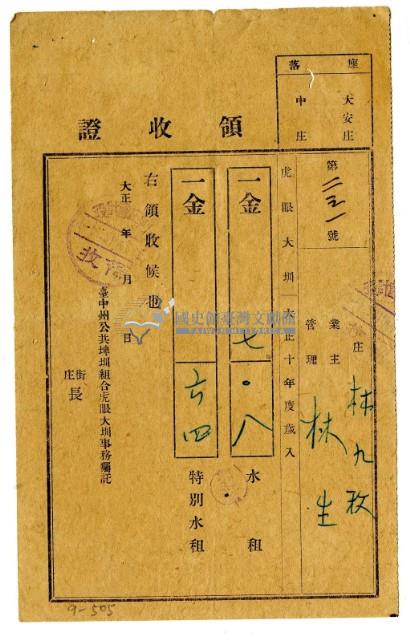 座落
大安庄
中庄
領收證
第二三一號
庄
業主 林九枚
管理 林生
虎眼大圳大正十年度歲入
一金 七.八 水租
一金 六四 特別水租
右領收候也
大正 年 月 日
臺中州公共埤圳組合虎眼大圳事務囑託
街庄長
國史館臺灣文獻館
9-505